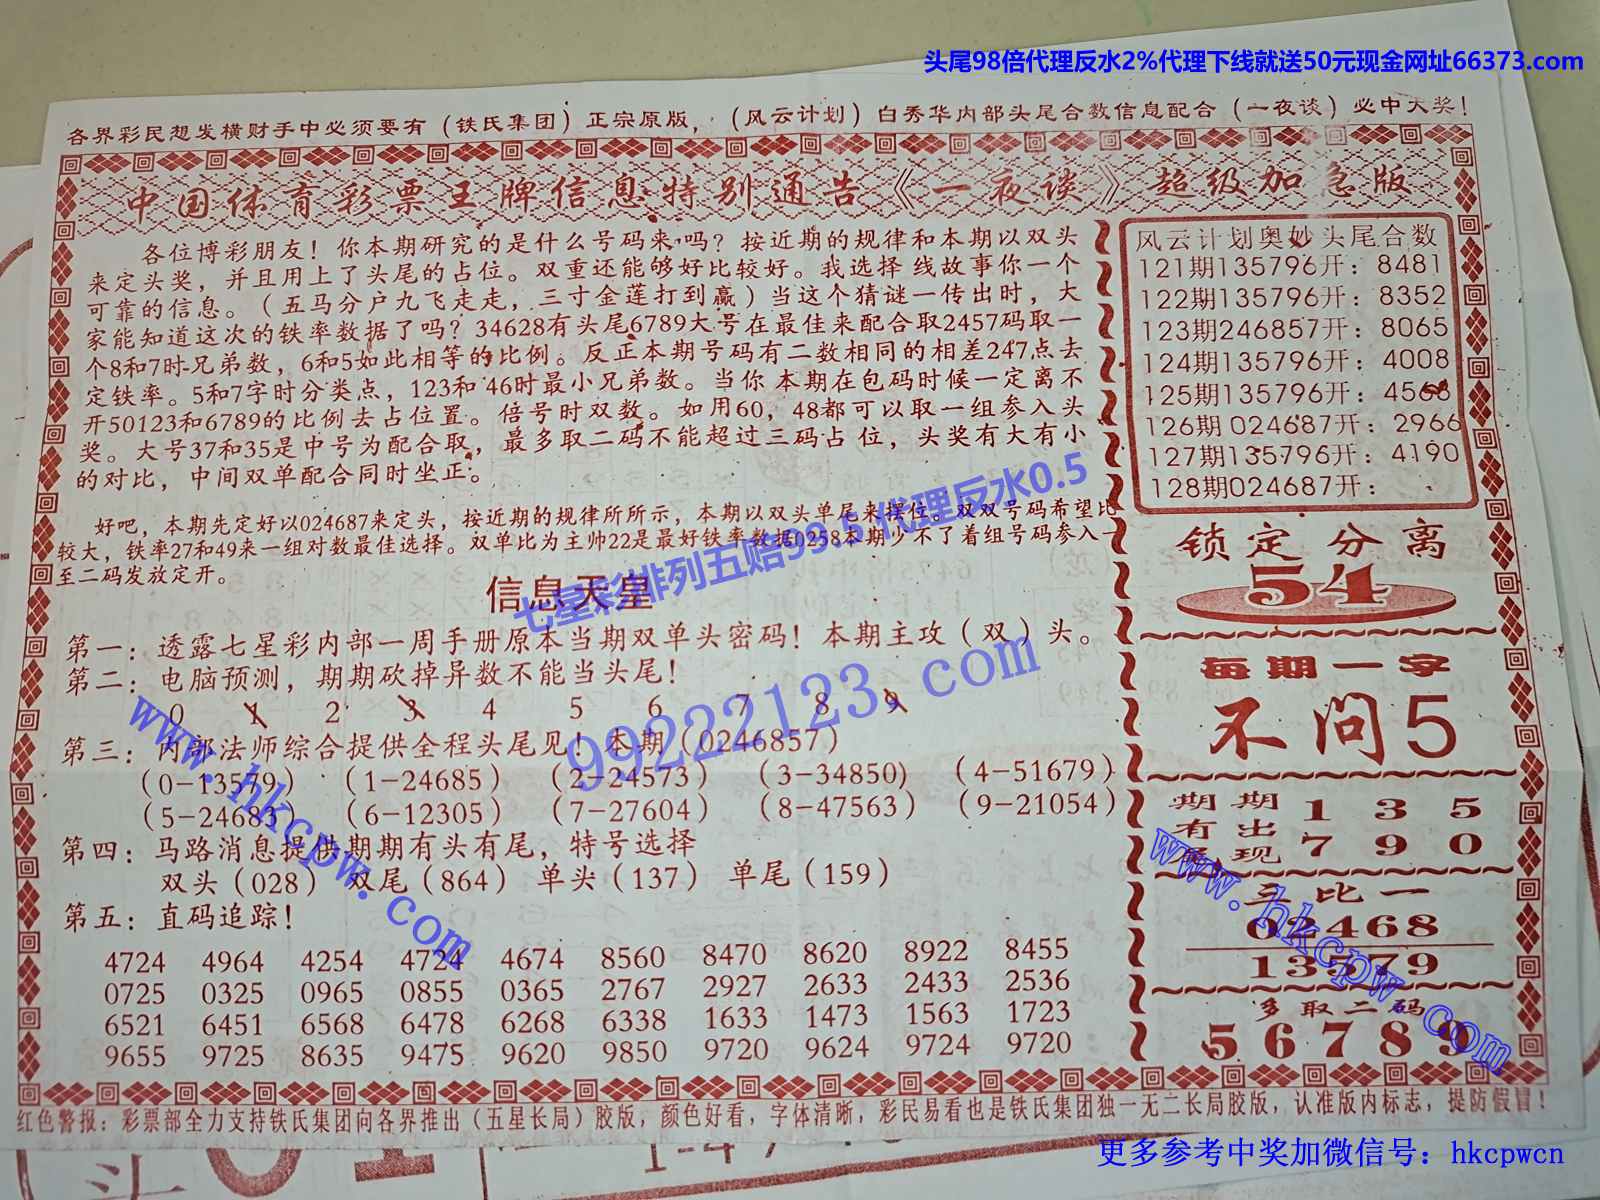 头尾98倍代理反水2%代理下线就送50元现金网址66373.com
各界彩民想发横财手中必须要有（铁氏集团）正宗原版，（风云计划）白秀华内部头尾合数信息配合（一夜谈）必中大奖！
中国体育彩票王牌信息特别通告《一夜谈》超级加急版
各位博彩朋友！你本期研究的是什么号码来吗？按近期的规律和本期以双头
来定头奖，并且用上了头尾的占位。双重还能够好比较好。我选择 线故事你一个
可靠的信息。（五马分户九飞走走，三寸金莲打到赢）当这个猜谜一传出时，大
家能知道这次的铁率数据了吗？34628有头尾6789大号在最佳来配合取2457码取一
个8和7时兄弟数，6和5如此相等的比例。反正本期号码有二数相同的相差247点去
定铁率。5和7字时分类点，123和46时最小兄弟数。当你本期在包码时候一定离不
开50123和6789的比例去占位置。倍号时双数。如用60，48都可以取一组参入头
奖。大号37和35是中号为配合取，最多取二码不能超过三码占位，头奖有大有小
的对比，中间双单配合同时坐正。
好吧，本期先定好以024687来定头，按近期的规律所所示，本期以双头单尾来摆位。双双号码希望比
较大，铁率27和49来一组对数最佳选择。双单比为主帅22是最好铁率数据0258本期少不了着组号码参入一
至二码发放定开。
信息天皇
七星彩排列五赔99.5 代理反水0.5
第一：透露七星彩内部一周手册原本当期双单头密码！本期主攻（双）头。
第二：电脑预测，期期砍掉异数不能当头尾！
0 1 2 3 4 5 6 7 8 9
第三：内部法师综合提供全程头尾见！本期（0246857）
（0-13579） （1-24685） （2-24573） （3-34850） （4-51679）
（5-24683） （6-12305） （7-27604） （8-47563） （9-21054）
第四：马路消息提供期期有头有尾，特号选择
双头（028） 双尾（864） 单头（137） 单尾（159）
第五：直码追踪！
4724 4964 4254 4724 4674 8560 8470 8620 8922 8455
0725 0325 0965 0855 0365 2767 2927 2633 2433 2536
6521 6451 6568 6478 6268 6338 1633 1473 1563 1723
9655 9725 8635 9475 9620 9850 9720 9624 9724 9720
风云计划奥妙头尾合数
121期135796开：8481
122期135796开：8352
123期246857开：8065
124期135796开：4008
125期135796开：4568
126期024687开：2966
127期135796开：4190
128期024687开：
锁定分离
54
每期一字
不问5
期期 1 3 5
有出
尾现 7 9 0
三比一
02468
13579
多取二码
56789
www.hkcpw.com
99222123.com
www.hkcpw.com
红色警报：彩票部全力支持铁氏集团向各界推出（五星长局）胶版，颜色好看，字体清晰，彩民易看也是铁氏集团独一无二长局胶版，认准版内标志，提防假冒！
更多参考中奖加微信号：hkcpwcn